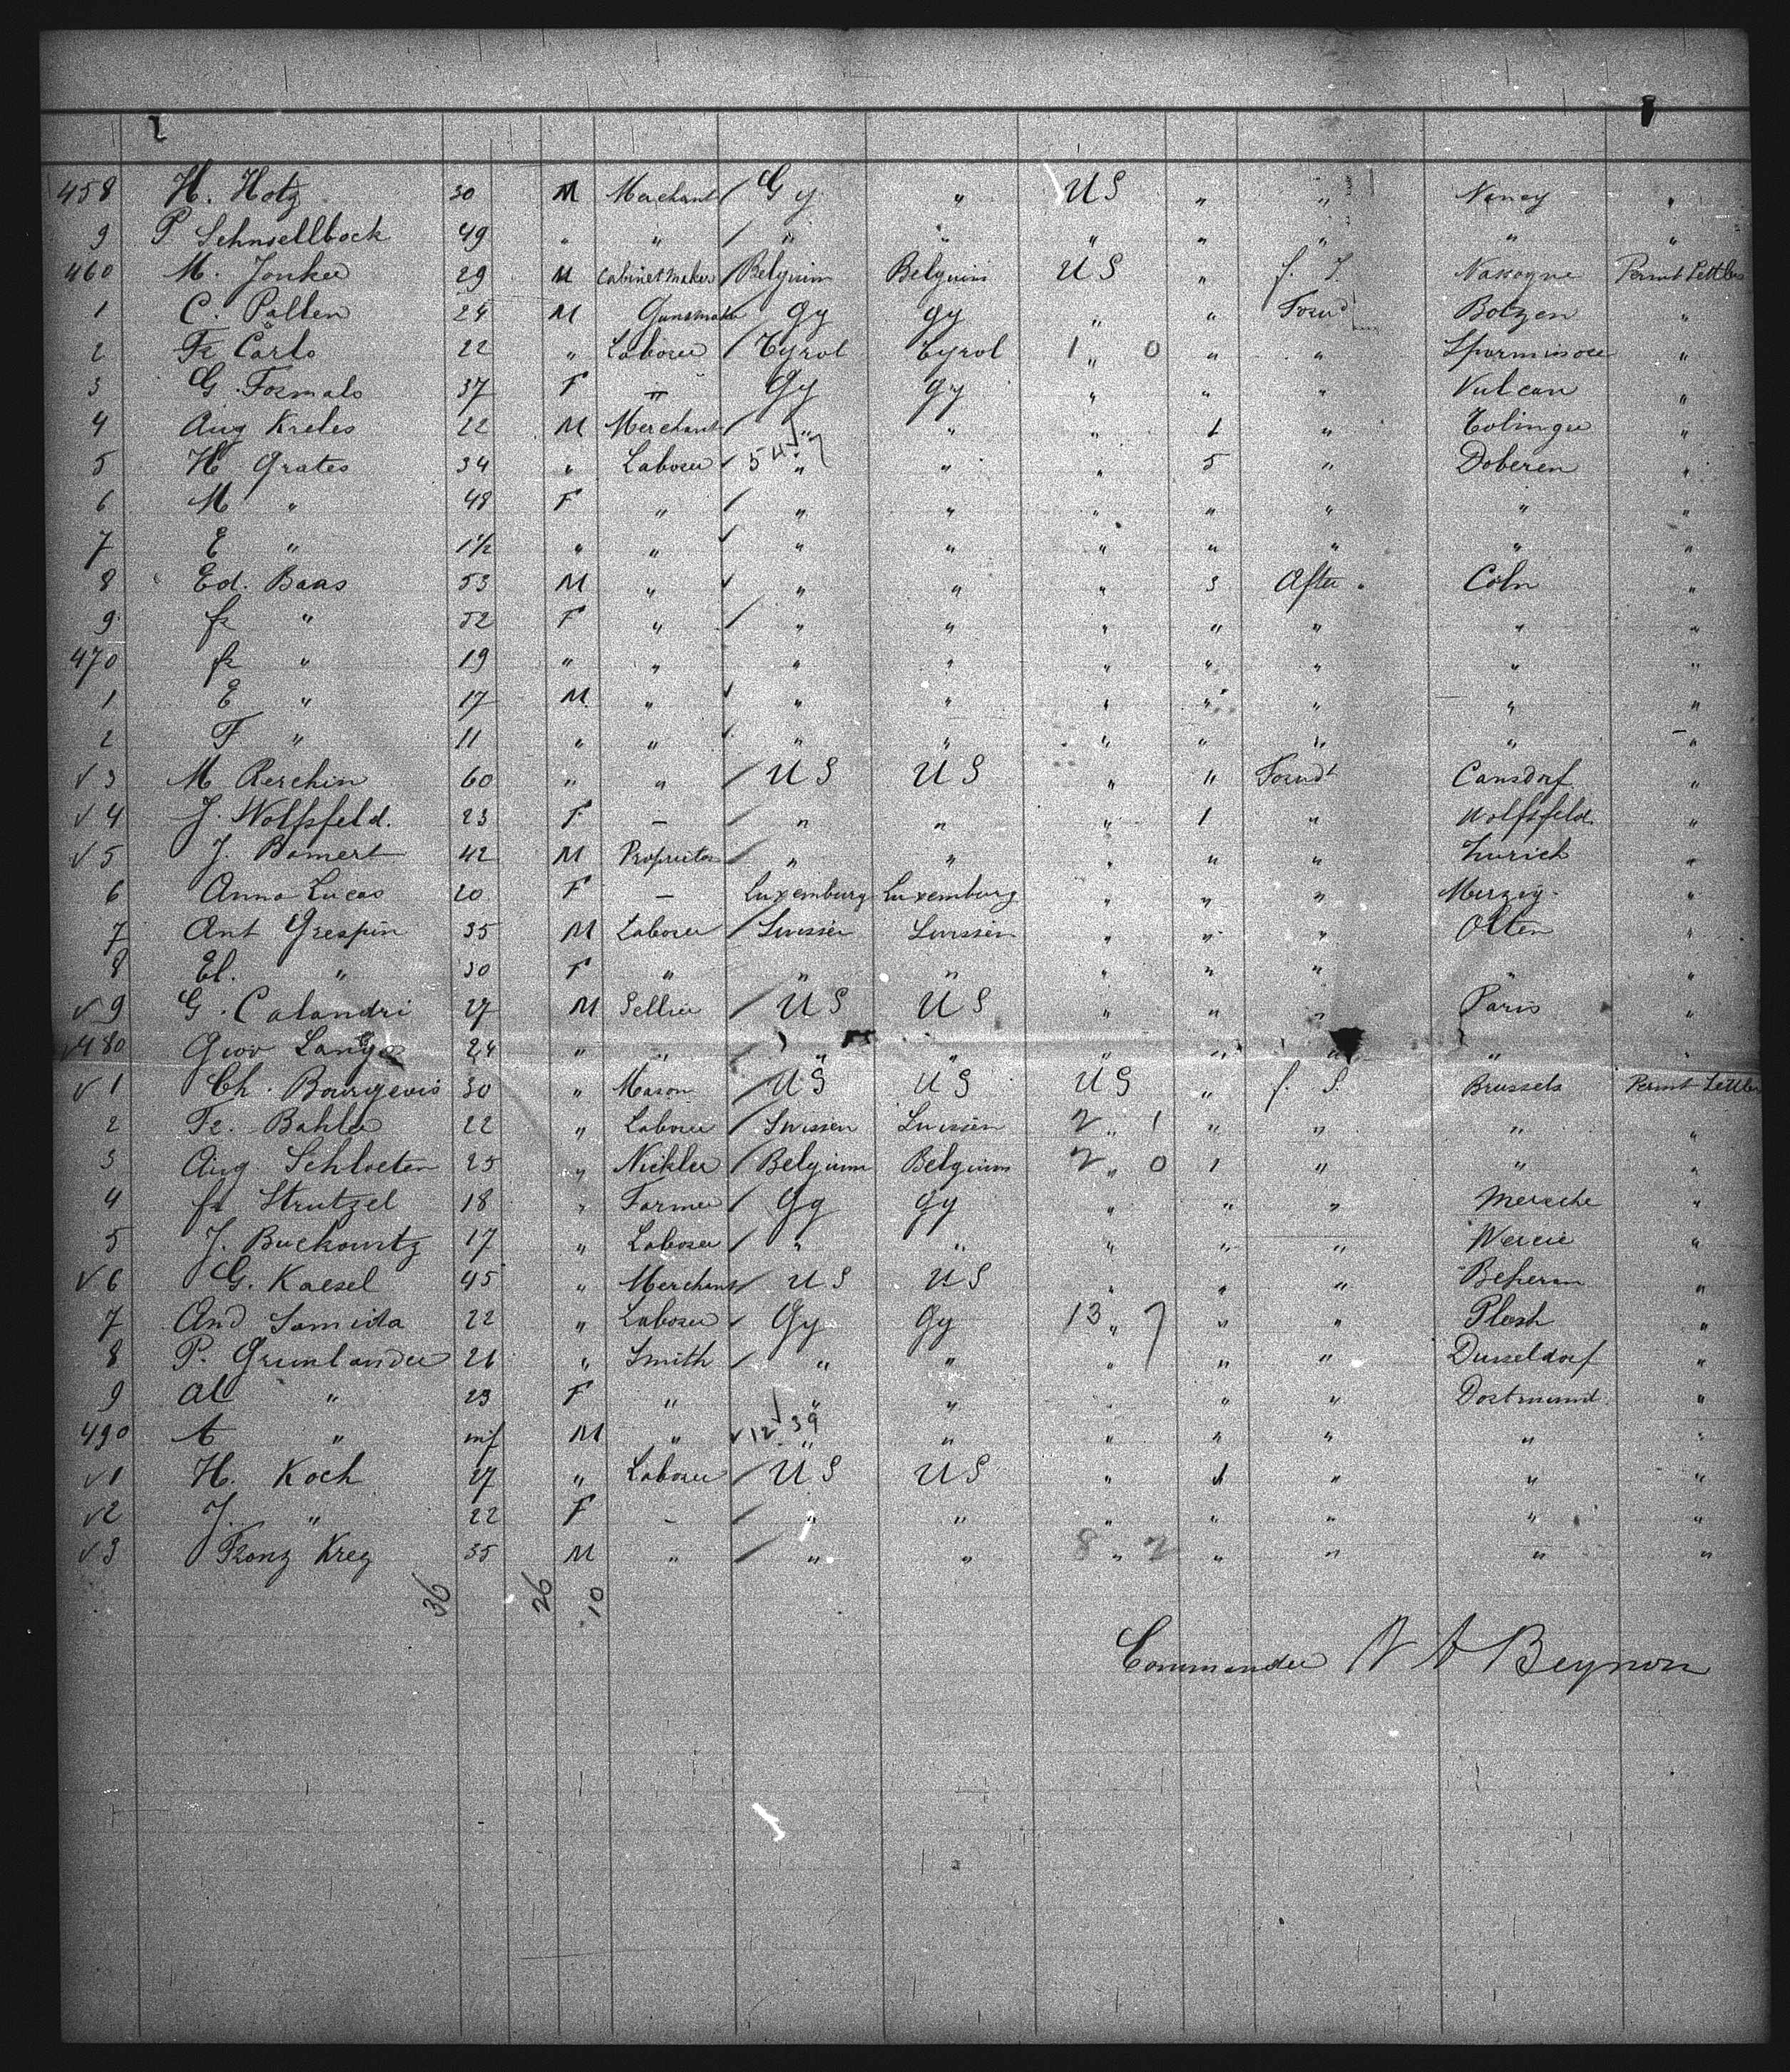 458 H. Hotz 30 M Merchant / Gy " US " " Nancy "
9 P Schnsellbock 49 " " / " " " " " " "
460 M. Jonker 29 M Cabinetmaker / Belguim Belguim US " f. S. Nasogne Permt Settlers
1 C. Palten 24 M Gunsmaker Gy Gy " " Forwd Botzen "
2 Fr Carlo 22 " Laborer / Tyrol Tyrol 1 " 0 " " "
3 G. Formals 37 F " Gy Gy " " " Vulcan "
4 Aug Kreles 22 M Merchant / " " " 1 " Tolinger "
5 H Grates 34 " Laborer ✓ 54 7 " " " 5 " Doberen "
6 M " 48 F " / " " " " " " "
7 E " 1½ " " ✓ " " " " " " "
8 Ed. Baas 53 M " ✓ " " " 3 After " Coln "
9 fr " 52 F " / " " " " " " "
470 fr " 19 " " " " " " " " "
1 E " 17 M " ✓ " " " " " " "
2 F " 11 " " ✓ " " " " " " "
✓ 3 M Rerchin 60 " " / US US " " Forwdt Cansdorf "
✓ 4 J. Wolfsfeld. 23 F – / " " " 1 " Wolfsfeld. "
✓ 5 J. Bomert 42 M Proprietor / " " " " " Zurich "
6 Anna Lucas 20 F – Luxemburg Luxemburg " " " Merzig "
7 Ant Grespin 35 M Laborer / Swissen Swissen " " " Olten "
8 El. " 30 F " " " " " " " "
✓ 9 G. Calandri 27 M Sellier / US US " " " Paris "
✓ 480 Giov Langos 24 " " / " " " " " " "
✓ 1 Ch. Bourgevis 30 " Mason / US US US " f. S. Brussels Permt Settler
2 Fr. Bahler 22 " Laborer / Swissen Swissen 2 " 1 " " " "
3 Aug. Schloeten 25 " Nickler / Belgium Belgium 2 " 0 1 " " "
4 fr Strutzel 18 " Farmer / Gy Gy " " " Mersche "
5 J. Buckowitz 17 " Laborer / " " " " " "
✓ 6 G. Kaesel 45 " Merchant / US US " " " "
7 And Samida 22 " Laborer ✓ Gy Gy 13 " 7 " " Plesh "
8 P. Grunlander 26 " Smith / " " " " " Dusseldorf "
9 Al " 23 F " " " " " " Dortmund "
490 A " inf M " ✓ 12 39 " " " " " " "
✓ 1 H. Koch 27 " Laborer / US US " 1 " " "
✓ 2 J. " 22 F – / " " " " " " "
✓ 3 Franz Kreg 35 M " / " " 8 " 2 " " " "
36 26 10
Commander N A Beynon